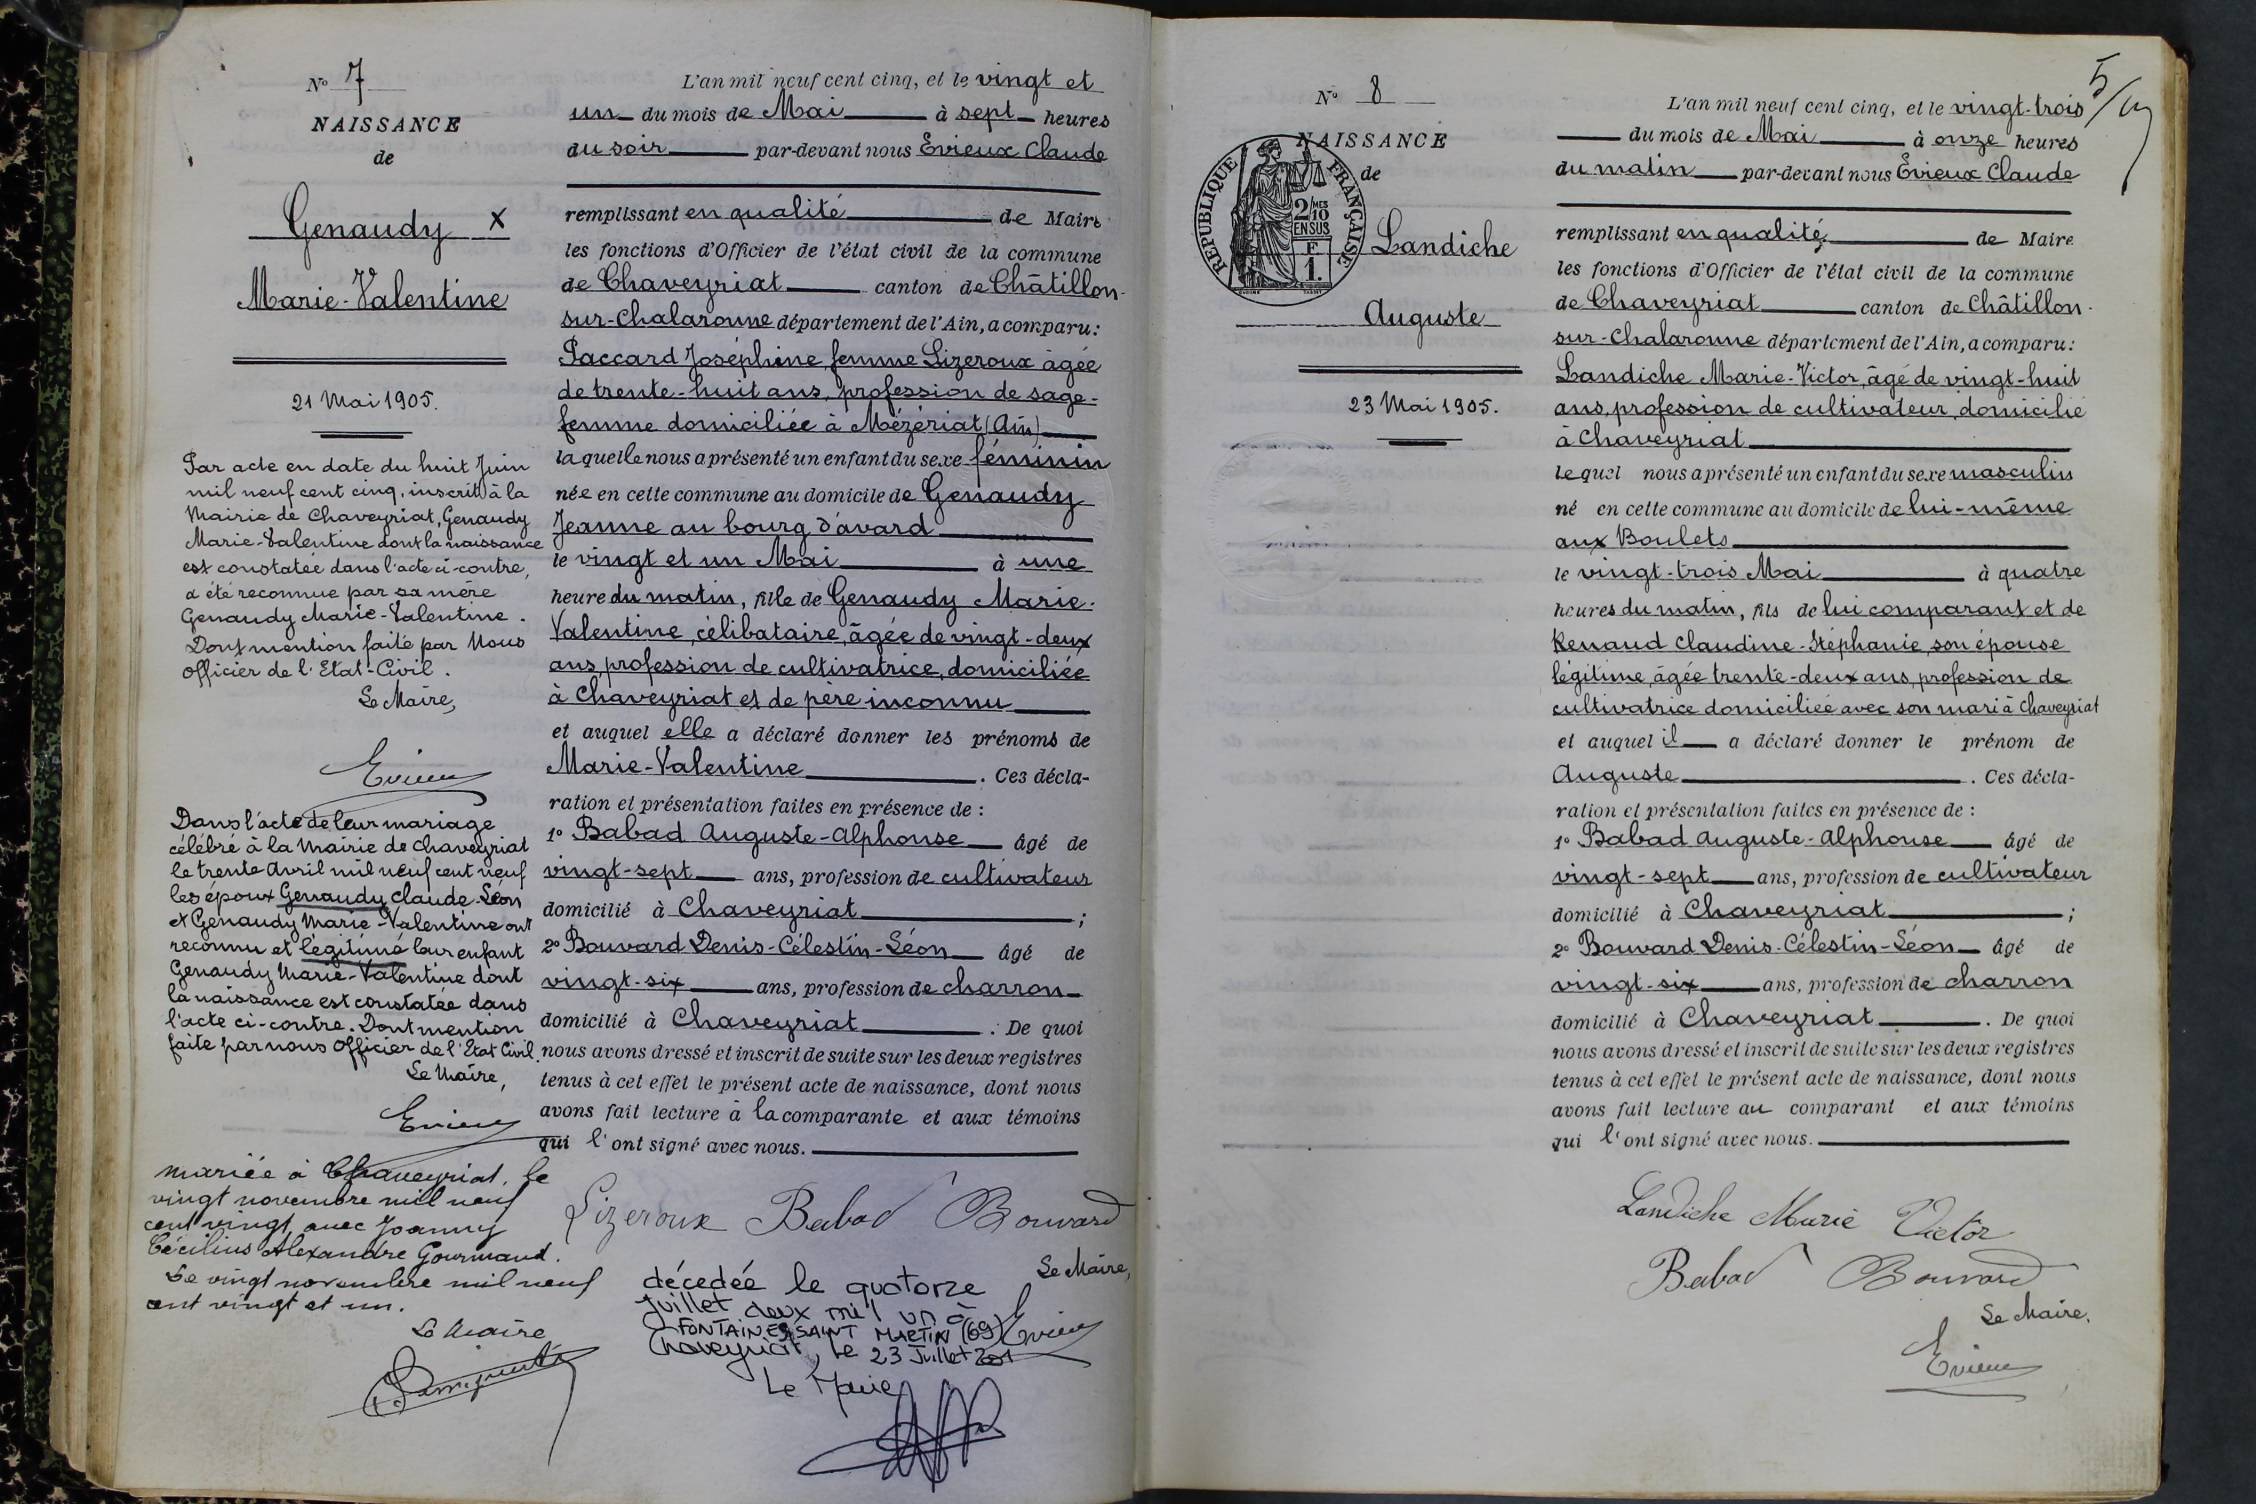 N° 7
NAISSANCE
de
Genaudy X
Marie-Valentine
21 Mai 1905.
Par acte en date du huit Juin
mil neuf cent cinq, inscrit à la
Mairie de Chaveyriat, Genaudy
Marie-Valentine dont la naissance
est constatée dans l'acte ci-contre,
a été reconnue par sa mère
Genaudy Marie-Valentine.
Dont mention faite par Nous
Officier de l'Etat-Civil.
Le Maire,
Evieux
Dans l'acte de leur mariage
célébré à la Mairie de Chaveyriat
le trente Avril mil neuf cent neuf
les époux Genaudy Claude-Léon
et Genaudy Marie-Valentine ont
reconnu et légitimé leur enfant
Genaudy Marie-Valentine dont
la naissance est constatée dans
l'acte ci-contre. Dont mention
faite par nous Officier de l'Etat Civil.
Le Maire,
Evieux
mariée à Chaveyriat, le
vingt novembre mil neuf
cent vingt, avec Joanny
Cécilius Alexandre Gourmand.
Le vingt novembre mil neuf
cent vingt et un.
Le Maire
L'an mil neuf cent cinq, et le vingt et
un du mois de Mai à sept heures
du soir par-devant nous Evieux Claude
remplissant en qualité de Maire
les fonctions d'Officier de l'état civil de la commune
de Chaveyriat canton de Châtillon-
sur-Chalaronne département de l'Ain, a comparu:
Paccard Joséphine, femme Lizeroux âgée
de trente-huit ans, profession de sage-
femme domiciliée à Mézériat (Ain)
laquelle nous a présenté un enfant du sexe féminin
née en cette commune au domicile de Genaudy
Jeanne au bourg d'avard
le vingt et un Mai à une
heure du matin, fille de Genaudy Marie-
Valentine, célibataire, âgée de vingt-deux
ans, profession de cultivatrice, domiciliée
à Chaveyriat et de père inconnu
et auquel elle a déclaré donner les prénoms de
Marie-Valentine. Ces décla-
ration et présentation faites en présence de :
1° Babad Auguste-Alphonse âgé de
vingt-sept ans, profession de cultivateur
domicilié à Chaveyriat ;
2° Bouvard Denis-Célestin-Léon âgé de
vingt-six ans, profession de charron
domicilié à Chaveyriat. De quoi
nous avons dressé et inscrit de suite sur les deux registres
tenus à cet effet le présent acte de naissance, dont nous
avons fait lecture à la comparante et aux témoins
qui l'ont signé avec nous.
Lizeroux Babad Bouvard
Le Maire,
Evieux
décedée le quatorze
Juillet deux mil un à
FONTAINES SAINT MARTIN (69)
Chaveyriat, le 23 Juillet 2001
Le Maire
5
N° 8
NAISSANCE
de
Landiche
Auguste
23 Mai 1905.
REPUBLIQUE FRANÇAISE
2/10 MES
EN SUS
F
1.
L'an mil neuf cent cinq, et le vingt-trois
du mois de Mai à onze heures
du matin par-devant nous Evieux Claude
remplissant en qualité de Maire
les fonctions d'Officier de l'état civil de la commune
de Chaveyriat canton de Châtillon-
sur-Chalaronne département de l'Ain, a comparu:
Landiche Marie-Victor, âgé de vingt-huit
ans, profession de cultivateur, domicilié
à Chaveyriat
lequel nous a présenté un enfant du sexe masculin
né en cette commune au domicile de lui-même
aux Boulets
le vingt-trois Mai à quatre
heures du matin, fils de lui comparant et de
Renaud Claudine-Stéphanie, son épouse
légitime, âgée trente-deux ans, profession de
cultivatrice domiciliée avec son mari à Chaveyriat
et auquel il a déclaré donner le prénom de
Auguste. Ces décla-
ration et présentation faites en présence de :
1° Babad Auguste-Alphonse âgé de
vingt-sept ans, profession de cultivateur
domicilié à Chaveyriat ;
2° Bouvard Denis-Célestin-Léon âgé de
vingt-six ans, profession de charron
domicilié à Chaveyriat. De quoi
nous avons dressé et inscrit de suite sur les deux registres
tenus à cet effet le présent acte de naissance, dont nous
avons fait lecture au comparant et aux témoins
qui l'ont signé avec nous.
Landiche Marie Victor
Babad Bouvard
Le Maire,
Evieux